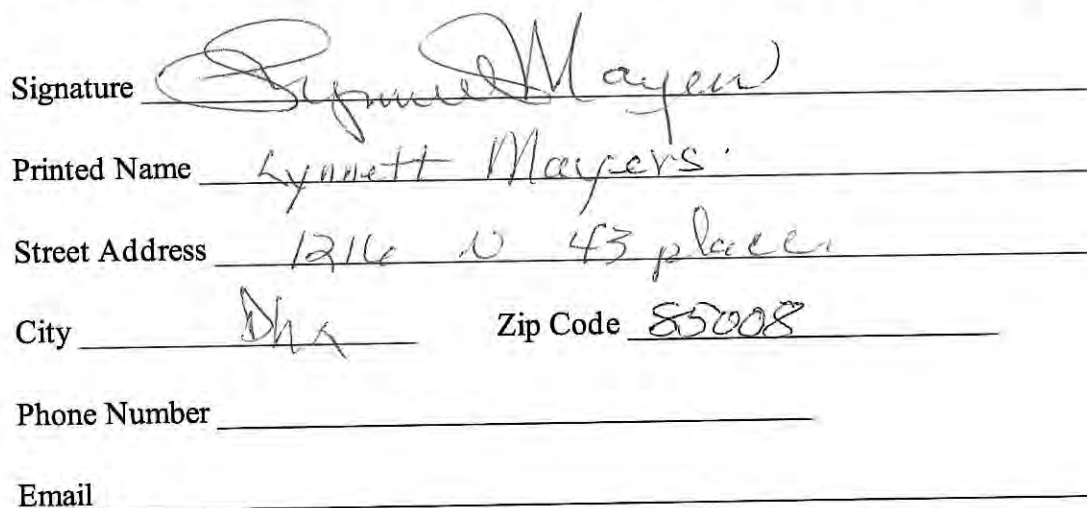 Signature Lynnett Mayers
Printed Name Lynnett Mayers.
Street Address 1216 N 43 place.
City Phx Zip Code 85008
Phone Number
Email